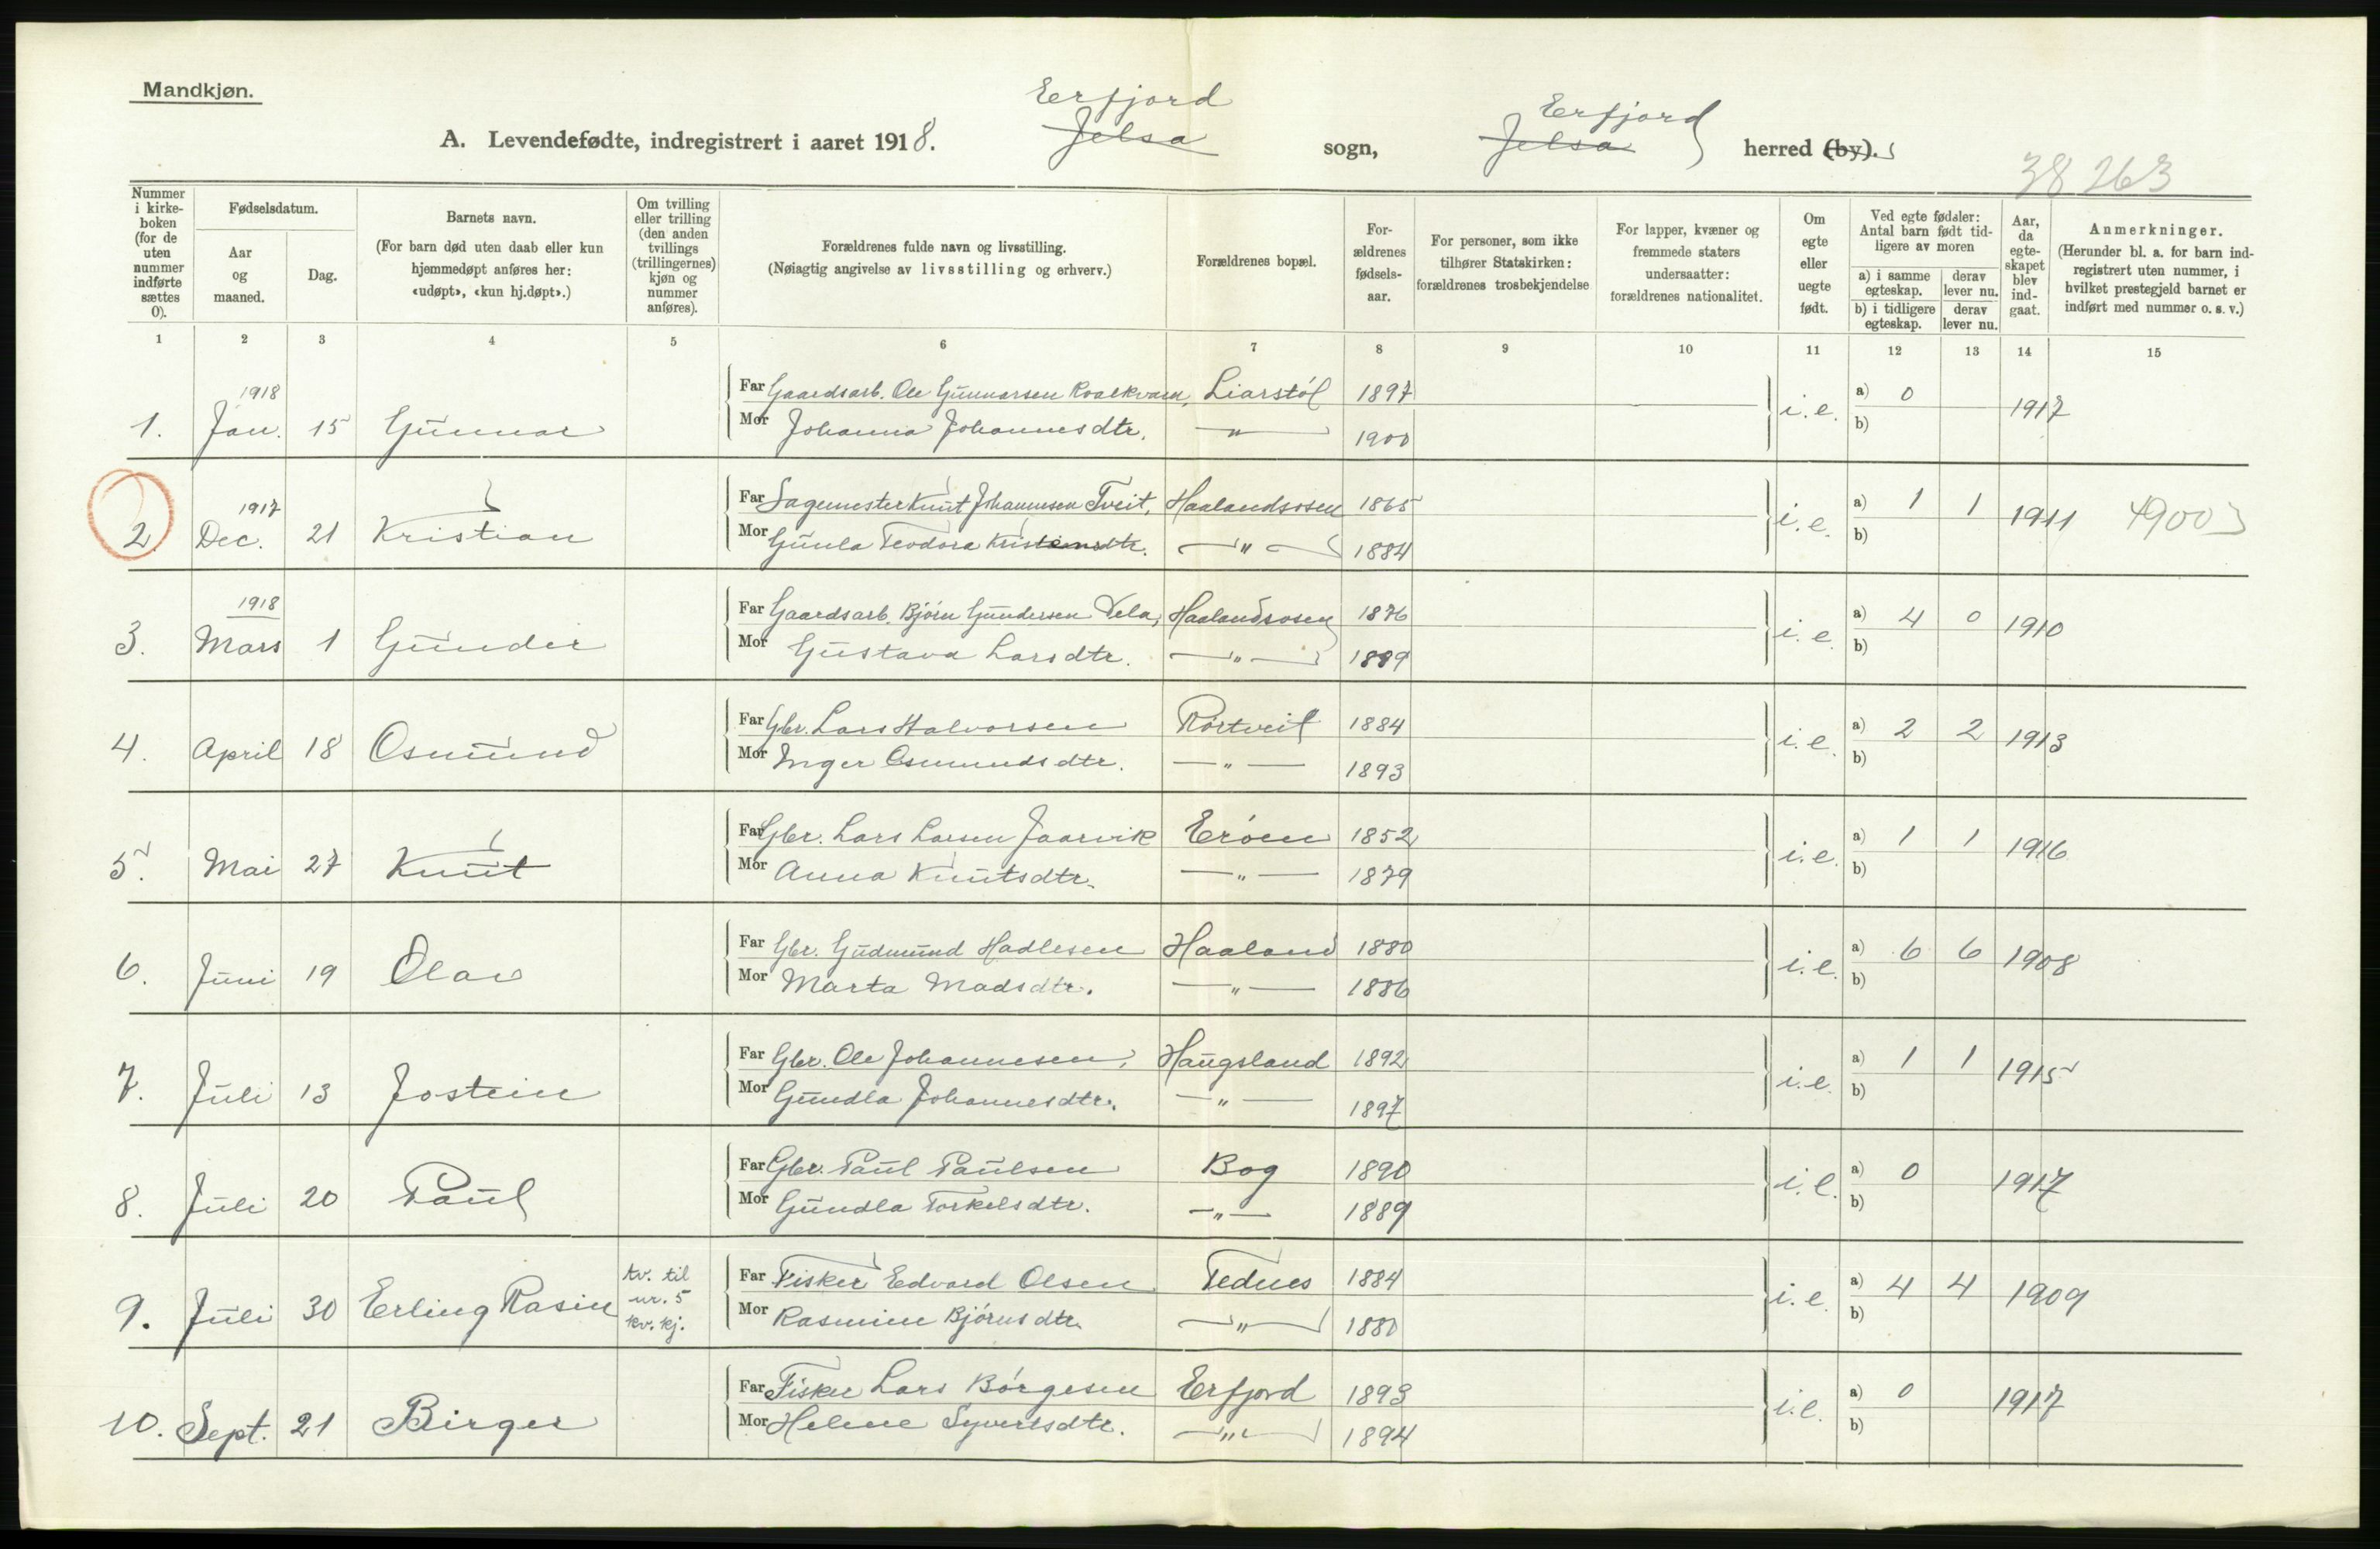 Mandkjøn.
Erfjord Erfjord
A. Levendefødte, indregistrert i aaret 1918. Jelsa sogn, Jelsa herred (by).
38 263
Nummer i kirkeboken (for de uten nummer indførte sættes 0).
Fødselsdatum.
Aar og maaned.
Dag.
Barnets navn.
(For barn død uten daab eller kun hjemmedøpt anføres her: «udøpt», «kun hj.døpt».)
Om tvilling eller trilling (den anden tvillings (trillingernes) kjøn og nummer anføres).
Forældrenes fulde navn og livsstilling.
(Nøiagtig angivelse av livsstilling og erhverv.)
Forældrenes bopæl.
Forældrenes fødselsaar.
For personer, som ikke tilhører Statskirken: forældrenes trosbekjendelse
For lapper, kvæner og fremmede staters undersaatter: forældrenes nationalitet.
Om egte eller uegte født.
Ved egte fødsler: Antal barn født tidligere av moren
a) i samme egteskap. derav lever nu.
b) i tidligere egteskap. derav lever nu.
Aar, da egteskapet blev indgaat.
Anmerkninger.
(Herunder bl. a. for barn indregistrert uten nummer, i hvilket prestegjeld barnet er indført med nummer o. s. v.)
1 2 3 4 5 6 7 8 9 10 11 12 13 14 15
1918
1. Jan. 15 Gunnar Far Gaardsarb. Ole Gunnarsen Roalkvam, Liarstøl 1897 i.e. a) 0 1917
Mor Johanna Johannesdtr. —"— 1900 b)
1917
2. Dec. 21 Kristian Far Sagmester Knut Johannesen Tveit, Haalandsosen 1865 i.e. a) 1 1 1911 4900
Mor Gunla Teodora Kristensdtr. —"— 1884 b)
1918
3. Mars 1 Gunder Far Gaardsarb. Bjørn Gundersen Vela, Haalandsosen 1876 i.e. a) 4 0 1910
Mor Gustava Larsdtr. —"— 1889 b)
4. April 18 Osmund Far Gbr. Lars Halvorsen Rørtveit 1884 i.e. a) 2 2 1913
Mor Inger Osmundsdtr. —"— 1893 b)
5. Mai 27 Knut Far Gbr. Lars Larsen Jaarvik Erøen 1852 i.e. a) 1 1 1916
Mor Anna Knutsdtr. —"— 1879 b)
6. Juni 19 Olav Far Gbr. Gudmund Hadlesen Haaland 1880 i.e. a) 6 6 1908
Mor Marta Madsdtr. —"— 1886 b)
7. Juli 13 Jostein Far Gbr. Ole Johannesen, Haugsland 1892 i.e. a) 1 1 1915
Mor Gundla Johannesdtr. —"— 1897 b)
8. Juli 20 Paul Far Gbr. Paul Paulsen Bog 1890 i.e. a) 0 1917
Mor Gundla Torkelsdtr. —"— 1889 b)
9. Juli 30 Erling Rasin tv. til nr. 5 kv. kj. Far Fisker Edvard Olsen Tednes 1884 i.e. a) 4 4 1909
Mor Rasmine Bjørnsdtr. —"— 1880 b)
10. Sept. 21 Birger Far Fisker Lars Børgesen Erfjord 1893 i.e. a) 0 1917
Mor Helene Syvertsdtr. —"— 1894 b)